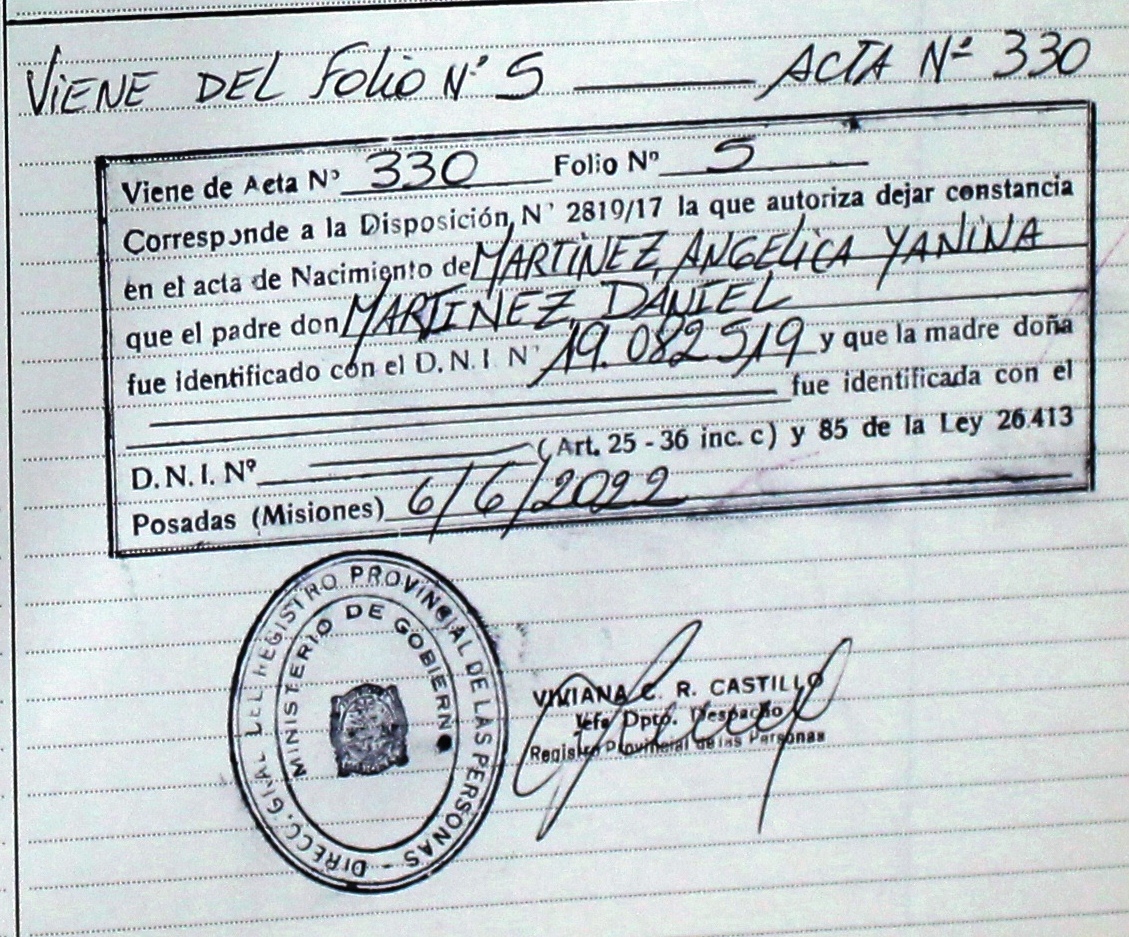 VIENE DEL FOLIO N° 5 ——— ACTA Nº 330
Viene de Acta Nº 330 Folio Nº 5
Corresponde a la Disposición N° 2819/17 la que autoriza dejar constancia
en el acta de Nacimiento de MARTINEZ, ANGELICA YANINA
que el padre don MARTINEZ, DANIEL
fue identificado con el D.N.I. N° 19.082519 y que la madre doña
fue identificada con el
D.N.I. Nº (Art. 25 - 36 inc. c) y 85 de la Ley 26.413
Posadas (Misiones) 6/6/2022
DIRECC. GRAL. DEL REGISTRO PROVINCIAL DE LAS PERSONAS -
MINISTERIO DE GOBIERNO
VIVIANA C. R. CASTILLO
Jefe Dpto. Despacho
Registro Provincial de las Personas